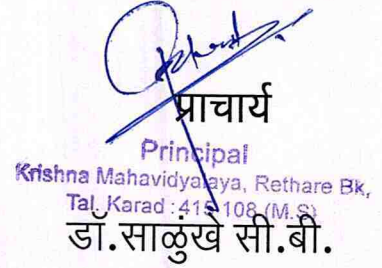 प्राचार्य
Principal
Krishna Mahavidyalaya, Rethare Bk,
Tal. Karad : 415 108 (M.S)
डॉ.साळुंखे सी.बी.